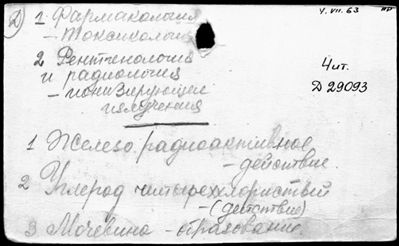 2) 1. Фармакология
4.VII.63
– токсикология
2 Рентгенология
и радиология
– ионизирующие
излучения
Чит.
Д 29093
1 Железо, радиоактивное
– действие
2 Углерод четыреххлористый
– (действие)
3 Мочевина – образование